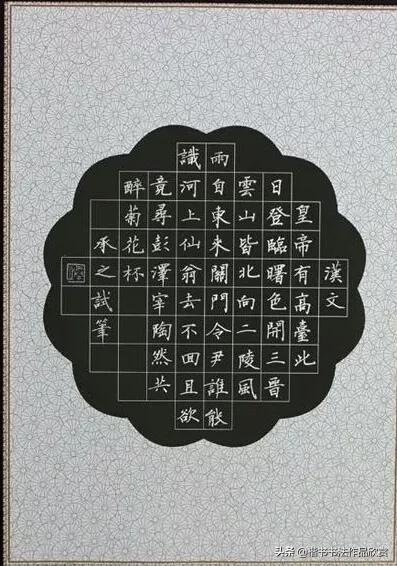 漢文
皇帝有高臺此
日登臨曙色開三晉
雲山皆北向二陵風
雨自東来關門令尹誰能
識河上仙翁去不回且欲
竟尋彭澤宰陶然共
醉菊花杯
承之試筆
头条 @楷书书法作品欣赏